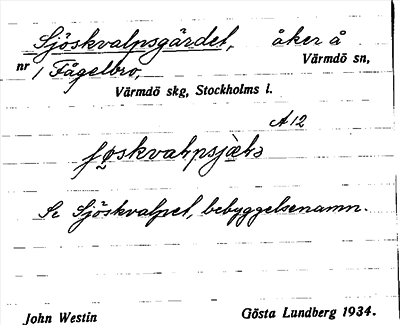 Sjöskvalpsgärdet, åker å
nr 1 Fågelbro, Värmdö sn,
Värmdö skg, Stockholms l.
A 12
Se Sjöskvalpet, bebyggelsenamn.
John Westin Gösta Lundberg 1934.